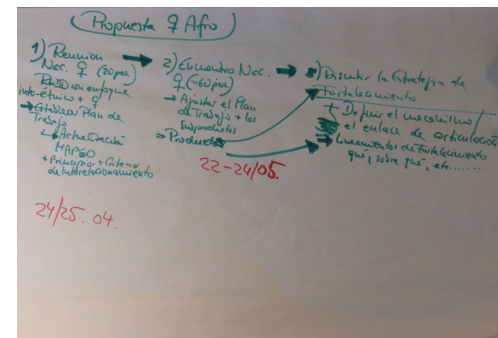 Propuesta ♀ Afro
1) Reunion
Nac. ♀ (20 per)
REDD con enfoque
inter-étnico + ♀
→ Establecer Plan de
Trabajo
↳ Actualización
MAPEO
+ Principios + Criterios
de Interrelacionamiento
24/25. 04.
2) Encuentro Nac.
♀ (-60 per)
→ Ajustar el Plan
de Trabajo + los
Subproductos
→ Productos
22-24/05.
3) Discutir la Estrategia de
Fortalecimiento
+ Definir el mecanismo/
el enlace de articulación
→ Lineamientos de Fortalecimiento
qué, sobre qué, etc......